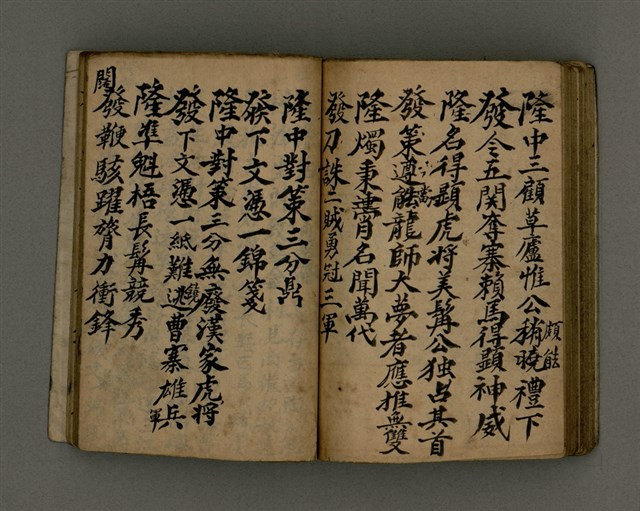 隆中三顧草廬惟公稍曉禮下
頗能
發令五關奪寨賴馬得顕神威
隆名得顕虎将美髯公独占其首
發策遵能龍師大夢者應推無雙
當
隆燭秉達宵名聞萬代
發刀誅二賊勇冠三軍
隆中對策三分鼎
發下文憑一錦箋
隆中對策三分無廢漢家虎将
發下文憑一紙難逃曹寨雄兵
軍
隆準魁梧長髯競秀
發鞭駭躍膂力衝鋒
關